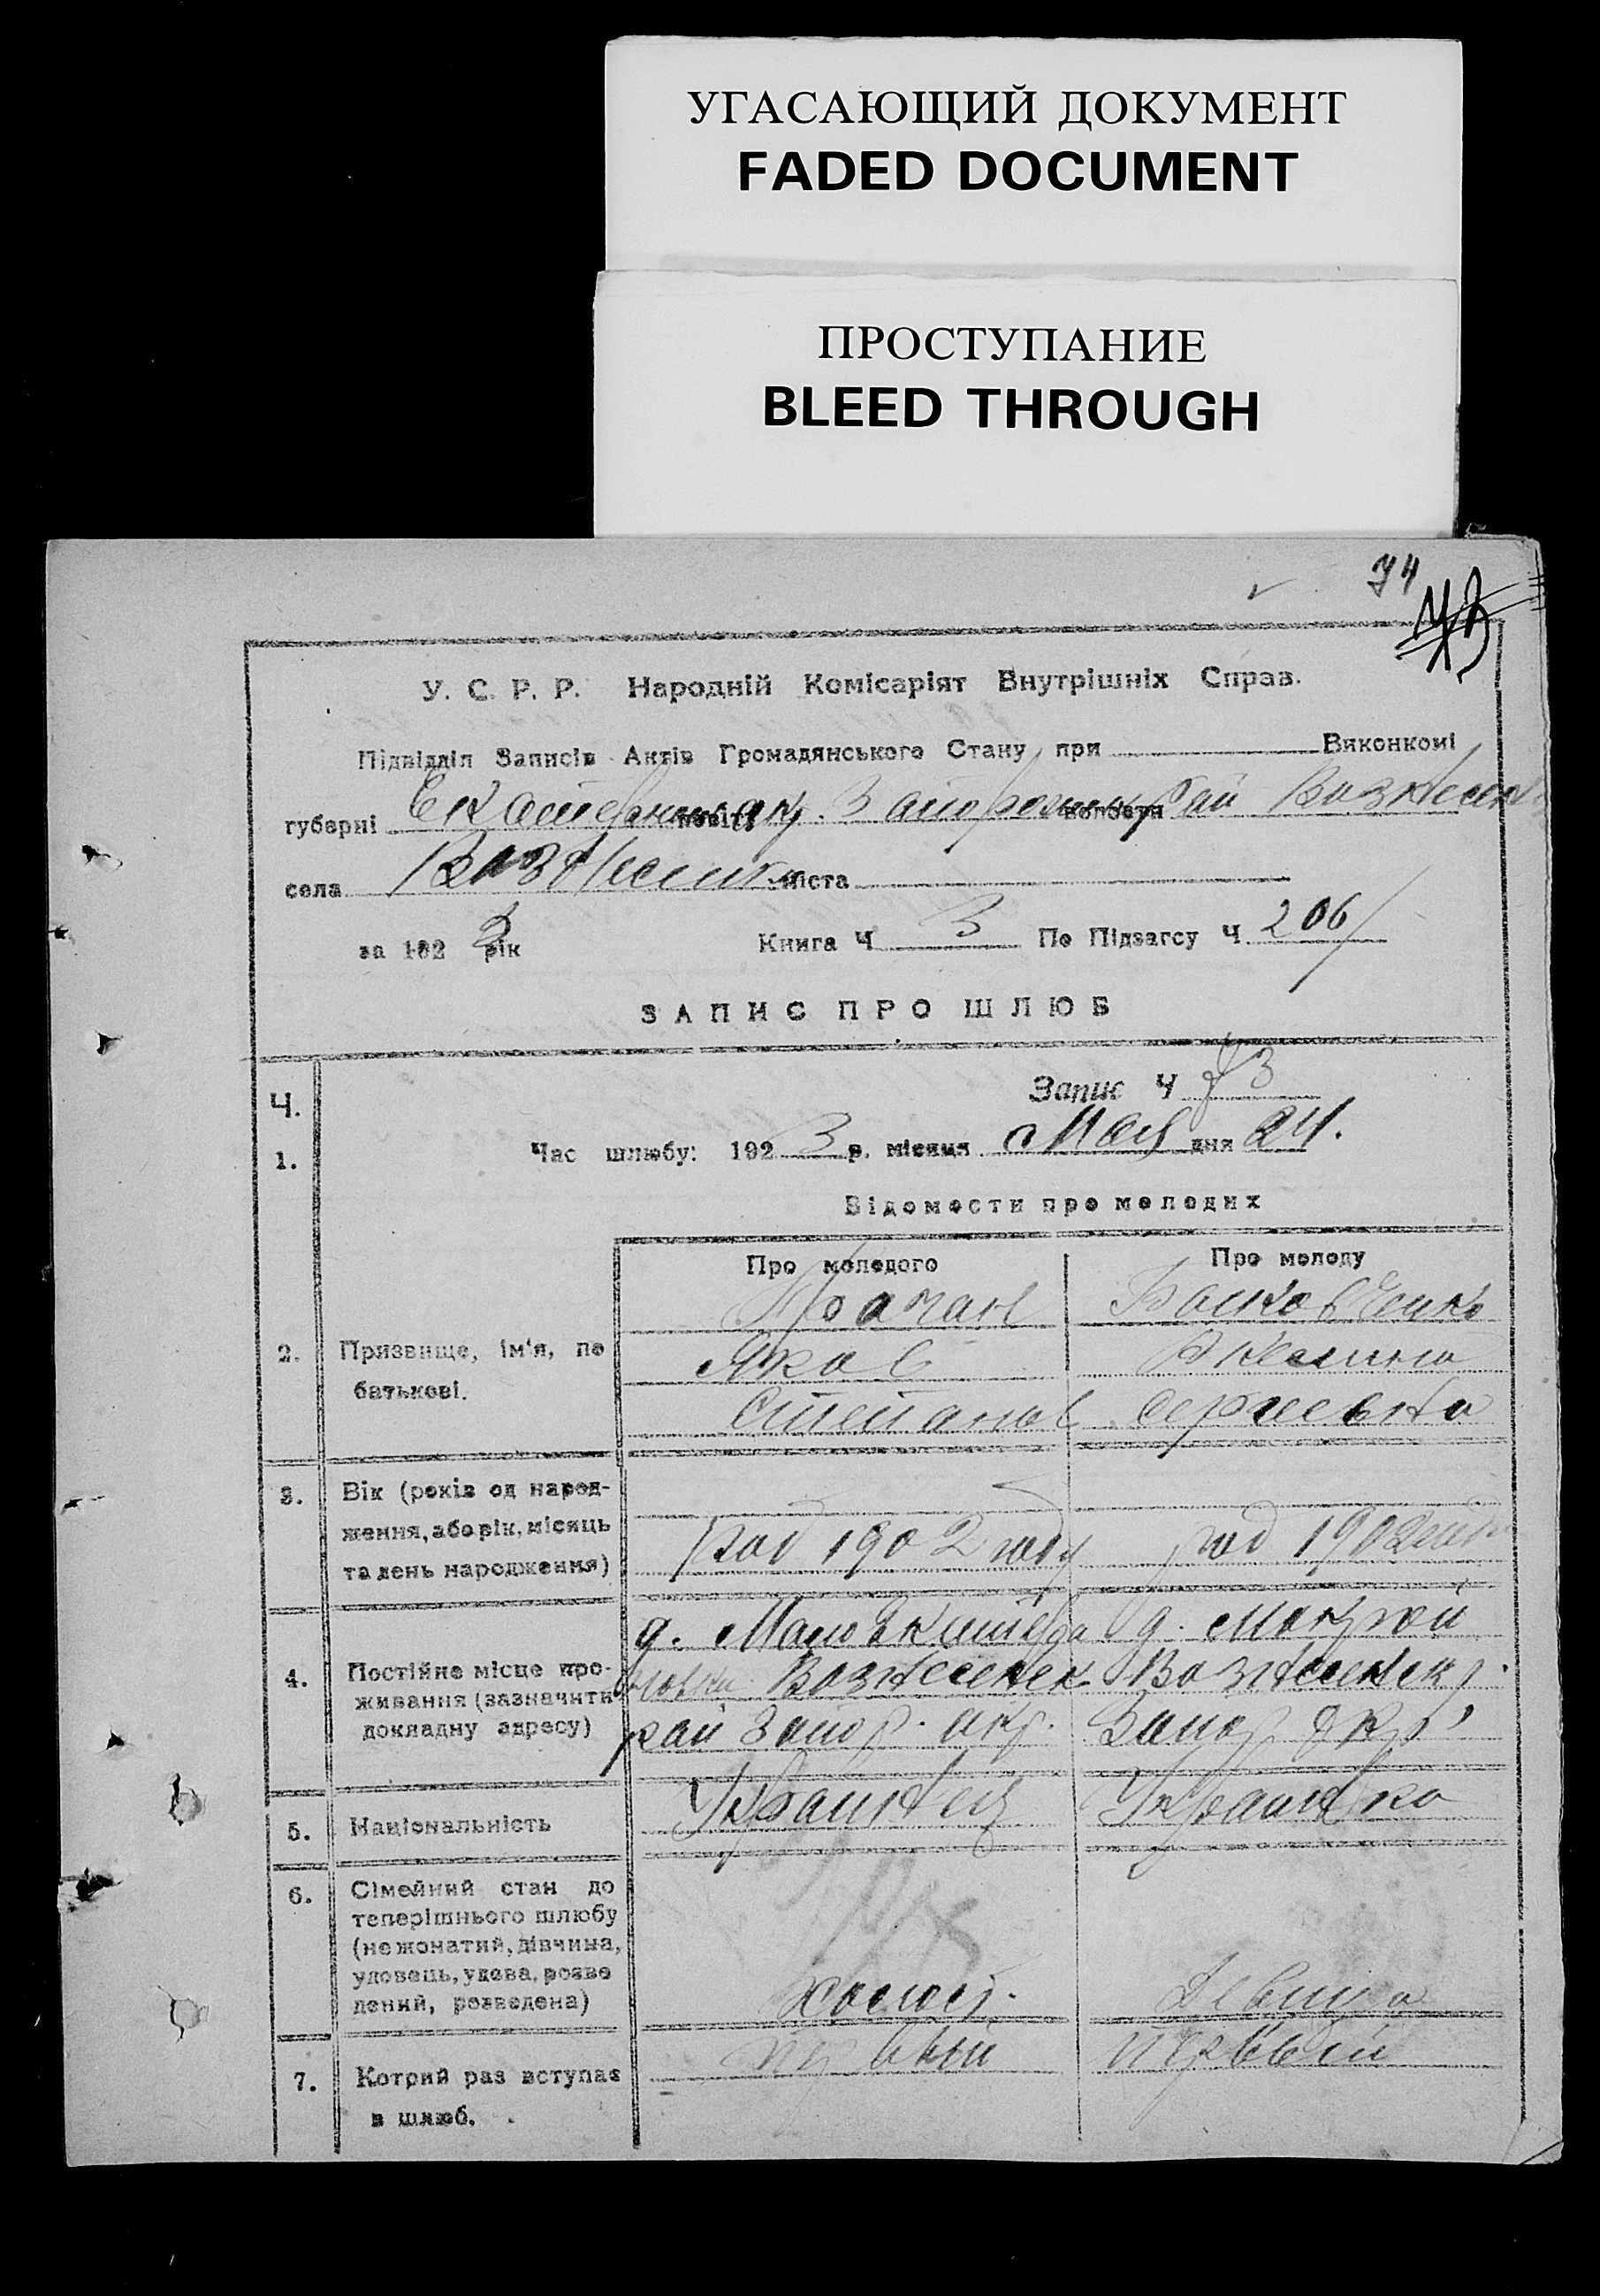 УГАСАЮЩИЙ ДОКУМЕНТ
FADED DOCUMENT
ПРОСТУПАНИЕ
BLEED THROUGH
74
У. С. Р. Р. Народній Комісаріят Внутрішніх Справ.
Підвідділ Записів Актів Громадянського Стану при Виконкомі
губерні повіту волости рай Вознесен
села Вознесенка міста
за 192 3 рік Книга Ч 3 По Підзагсу Ч 206
ЗАПИС ПРО ШЛЮБ
Ч. Запис Ч
1. Час шлюбу: 192 3 р. місяця Мая дня 24.
Відомости про молодих
Про молодого Про молоду
2. Призвище, ім'я, по батькові.
Яков
Степанов Сергеевна
3. Вік (років од народ-
ження, або рік, місяць
та день народження)
род 1902 году род 1902
д. д. Мокрой
4. Постійне місце про-
живання (зазначити
докладну адресу)
Вознесенск Вознесенск р.
рай Запор. окр. Запор окр
5. Національність Украинец Украинка
6. Сімейний стан до
теперішнього шлюбу
(не жонатий, дівчина,
удовець, удова, розве
дений, розведена)
холост. Девица
7. Котрий раз вступає
в шлюб.
первый первый